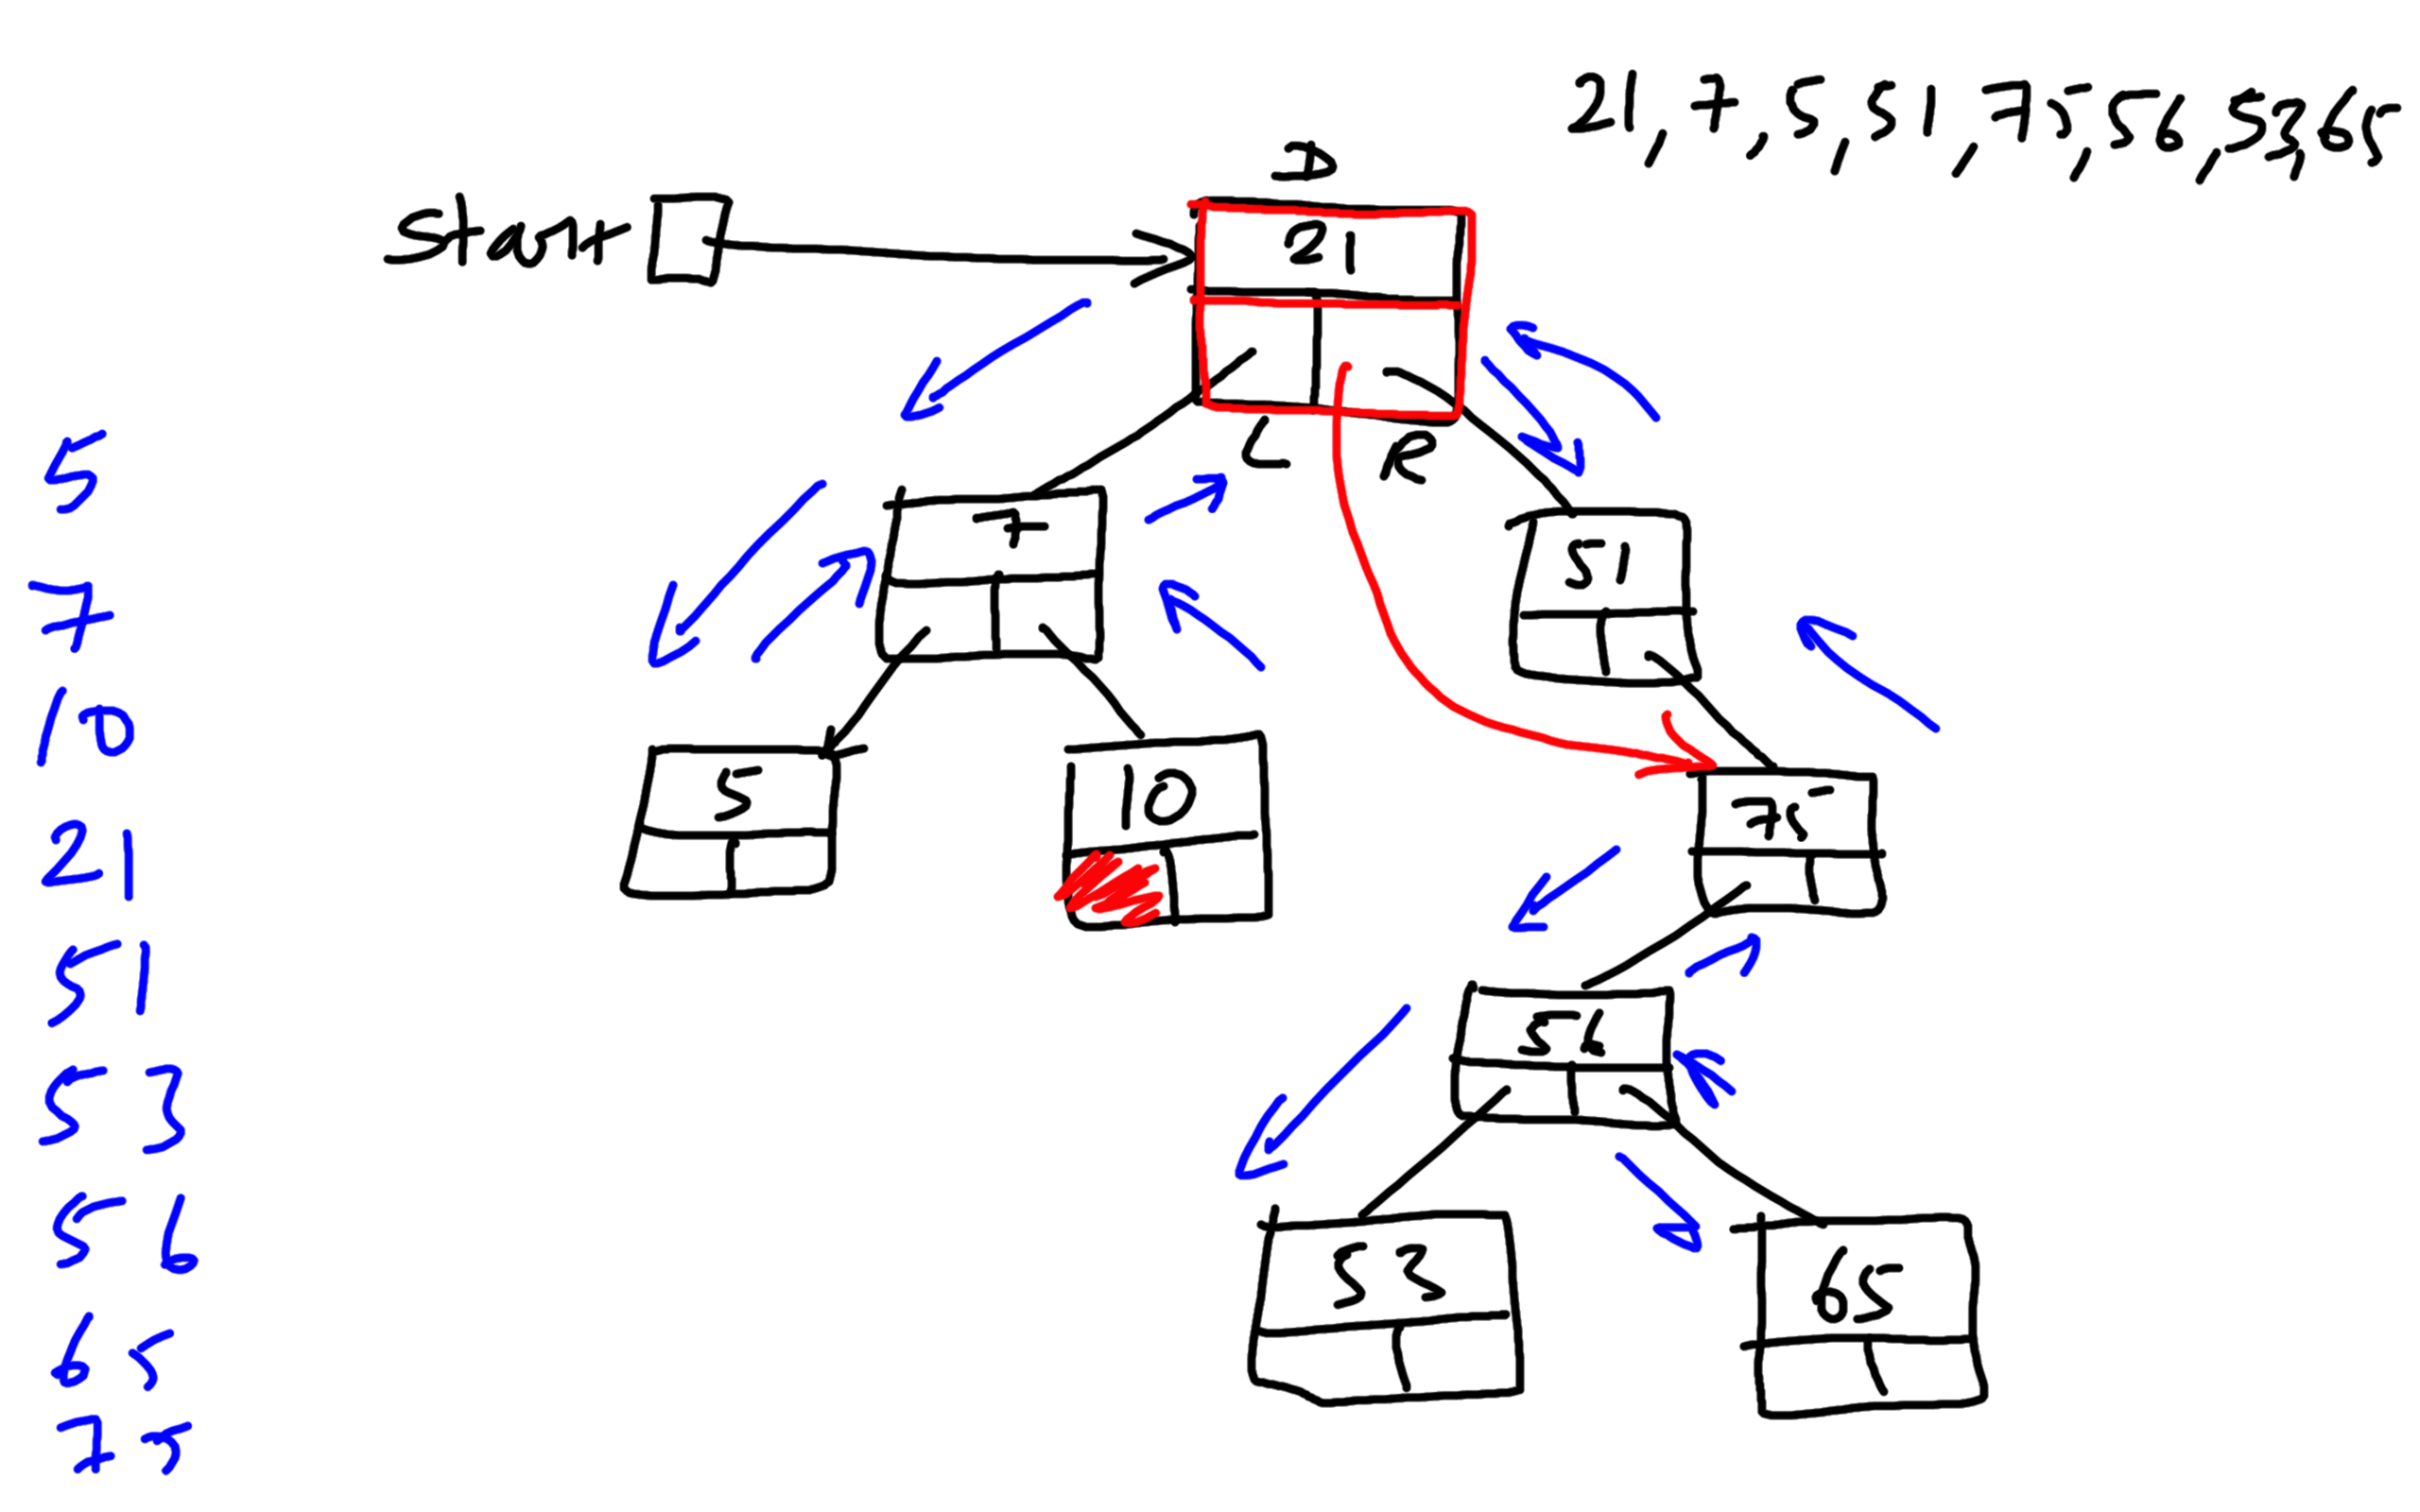 21, 7, 5, 51, 75, 56, 53, 65
D
Start
21
L R
7
51
5
10
75
56
53
65
5
7
10
21
51
53
56
65
75